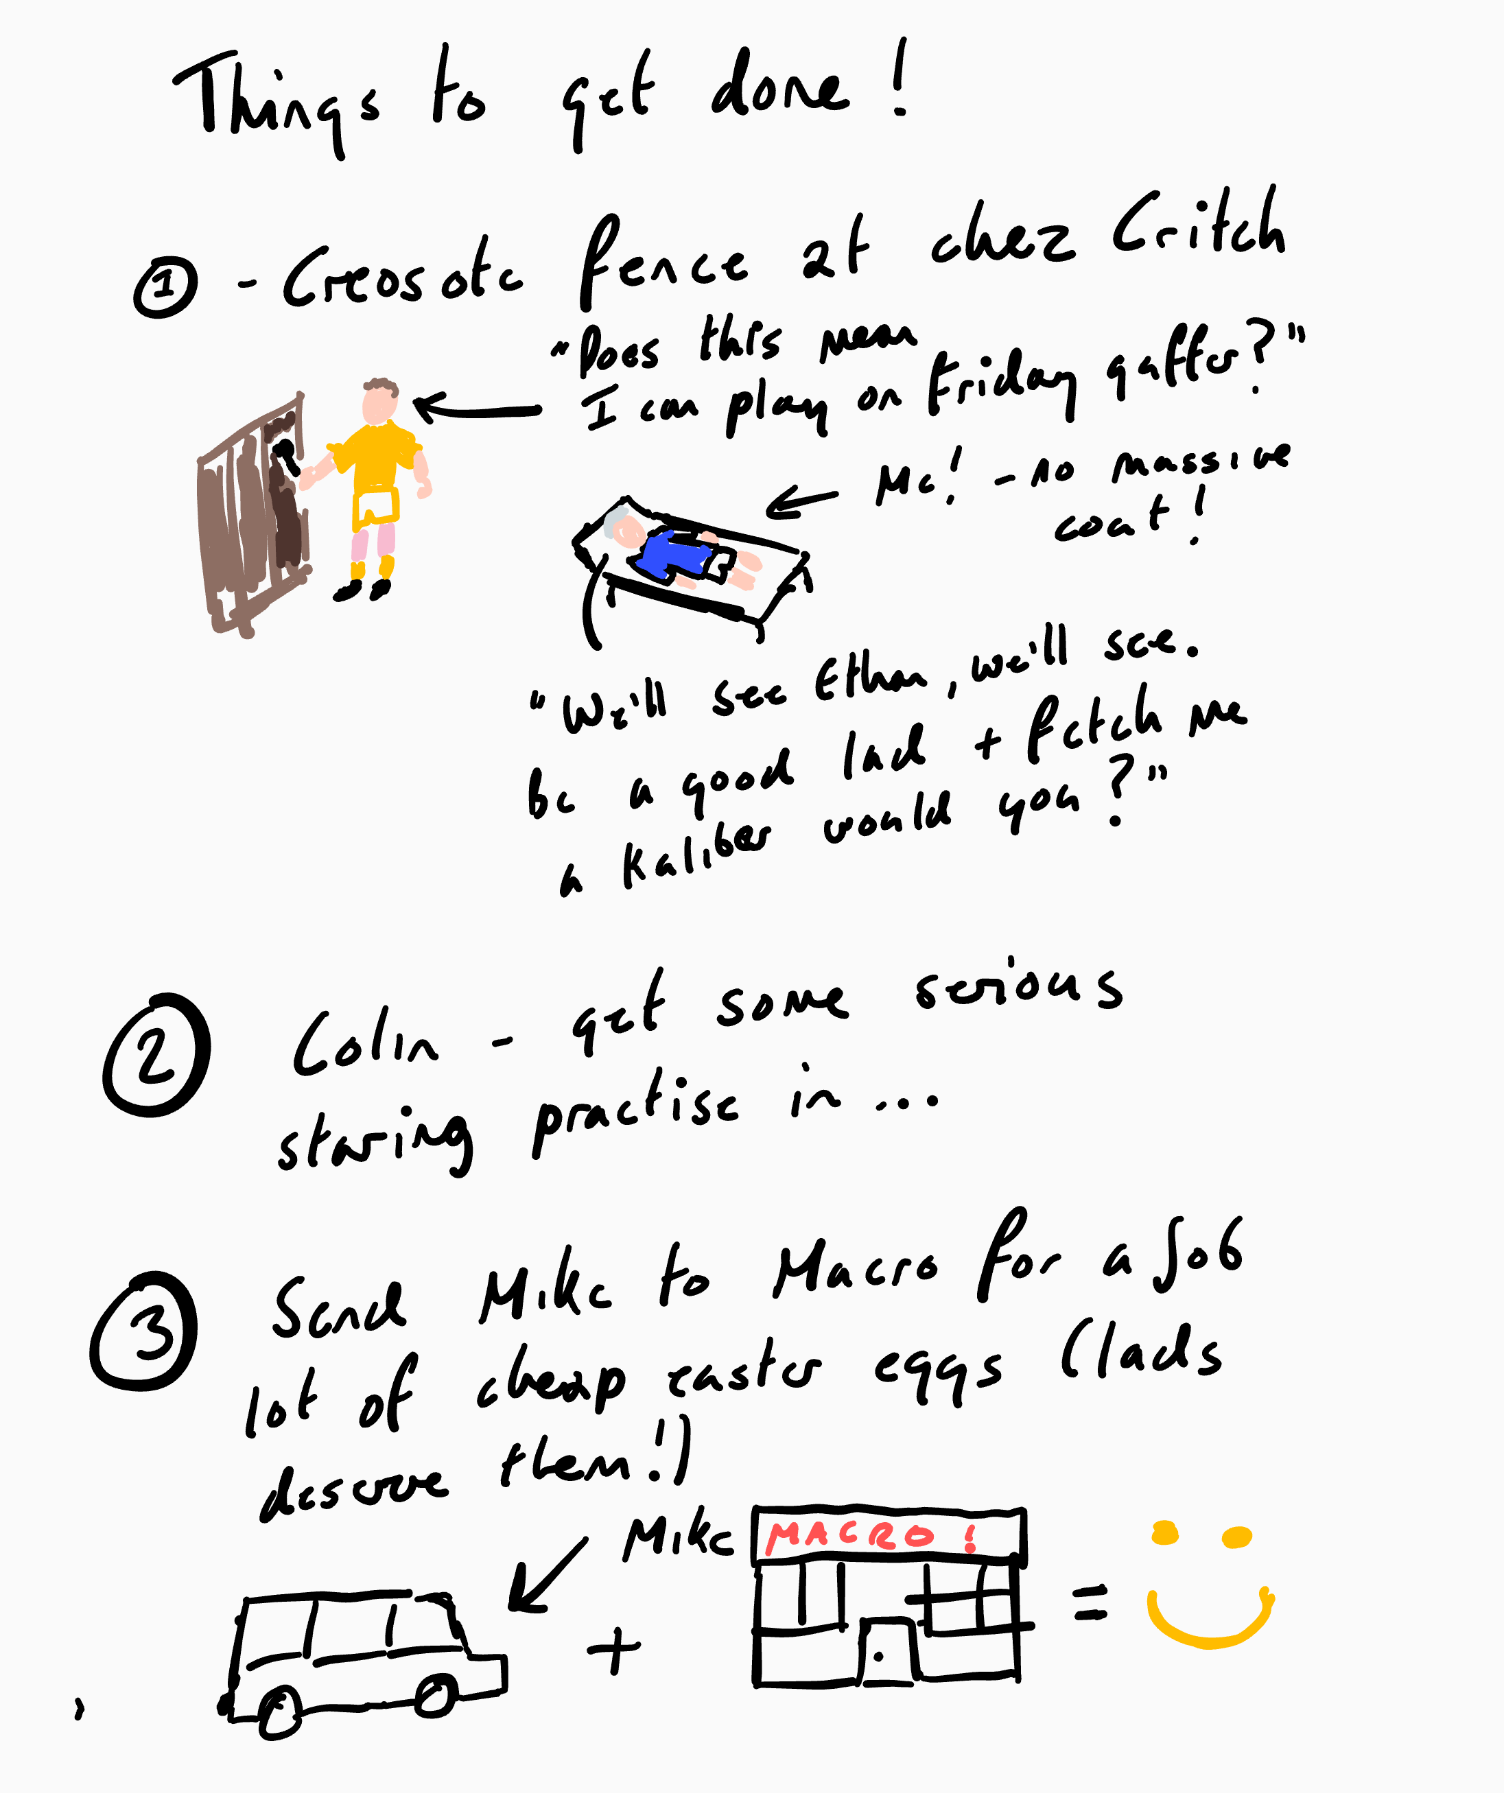 Things to get done!
1 - Creosote fence at chez Critch
"Does this mean
I can play on Friday gaffer?"
Me! - no massive
coat!
"We'll see Ethan, we'll see.
be a good lad + fetch me
a Kaliber would you?"
2 Colin - get some serious
staring practise in...
3 Send Mike to Macro for a job
lot of cheap easter eggs (lads
deserve them!)
Mike
MACRO!
+ =